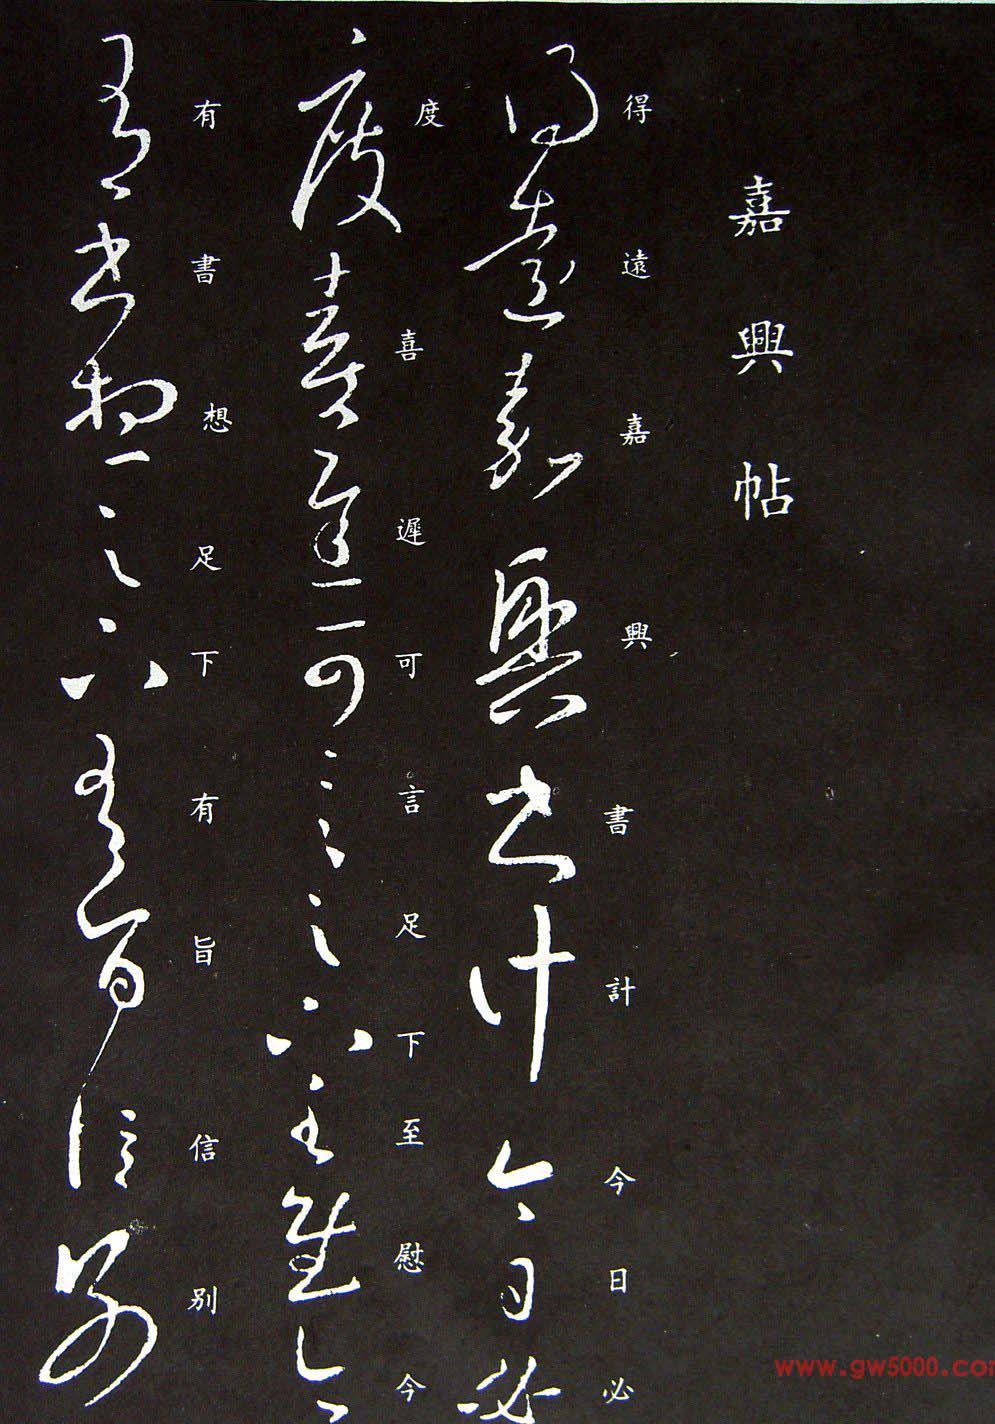 嘉興帖
得遠嘉興書計今日必
度喜遲可言足下至慰今
有書想足下有旨信別
www.gw5000.com